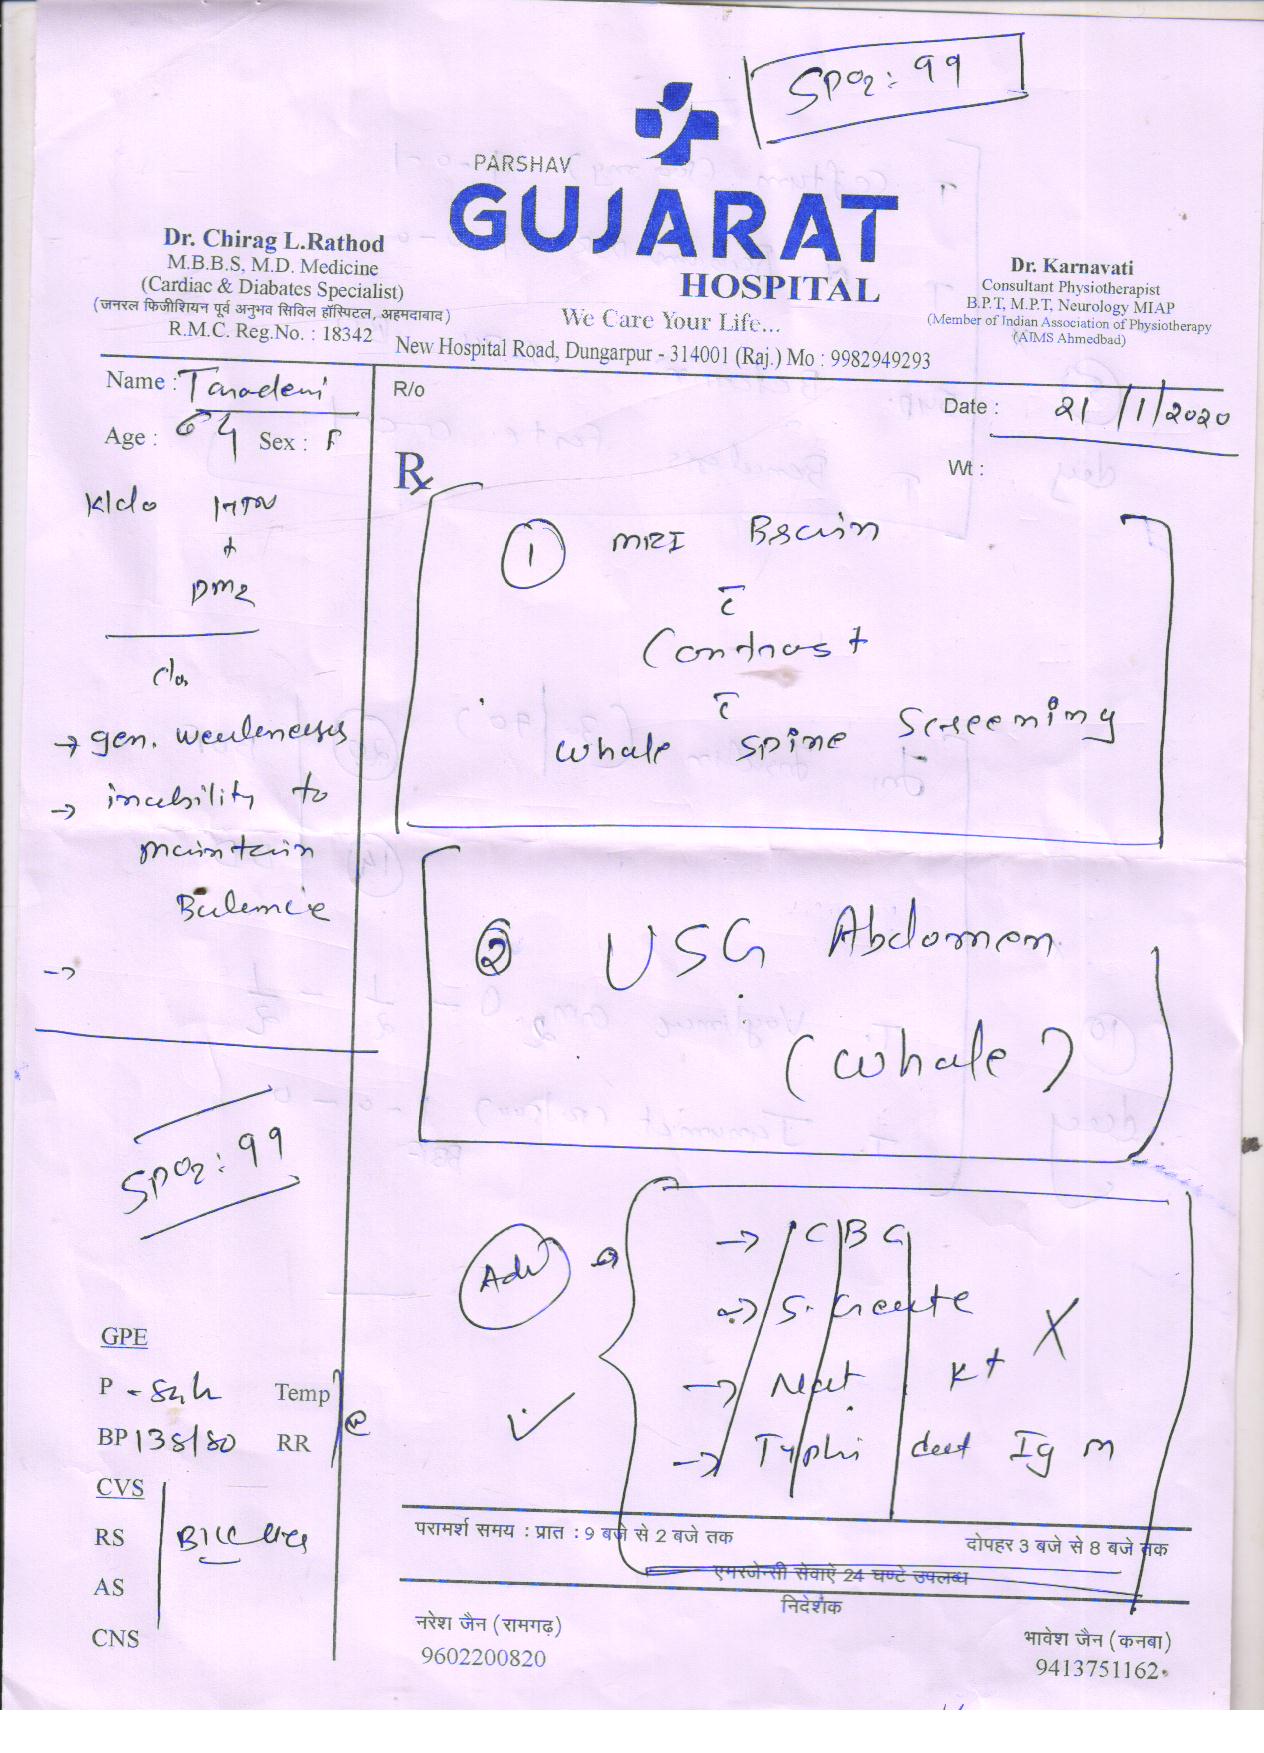 SPO2: 99
PARSHAV
GUJARAT
HOSPITAL
We Care Your Life...
New Hospital Road, Dungarpur - 314001 (Raj.) Mo : 9982949293
Dr. Chirag L.Rathod
M.B.B.S, M.D. Medicine
(Cardiac & Diabates Specialist)
(जनरल फिजीशियन पूर्व अनुभव सिविल हॉस्पिटल, अहमदाबाद)
R.M.C. Reg.No. : 18342
Dr. Karnavati
Consultant Physiotherapist
B.P.T, M.P.T, Neurology MIAP
(Member of Indian Association of Physiotherapy
(AIMS Ahmedbad)
Name : Taradevi
Age : 64 Sex : F
R/o
Date : 21/1/2020
Wt :
Rx
K/c/o HTN
+
DM2
c/o
→ gen. weaknesses
→ inability to
maintain
Balance
→
SPO2: 99
① MRI Brain
c̄
Contrast
c̄
whole spine Screening
② USG Abdomen
(whole)
Adv → → CBC
→ S. Create
→ Na+ K+ X
→ Typhi dect IgM
GPE
P - Temp
BP 138/80 RR
CVS
RS
AS
CNS
परामर्श समय : प्रात : 9 बजे से 2 बजे तक
दोपहर 3 बजे से 8 बजे तक
एमरजेन्सी सेवाऐं 24 घण्टे उपलब्ध
निदेशक
नरेश जैन (रामगढ़)
9602200820
भावेश जैन (कनबा)
9413751162